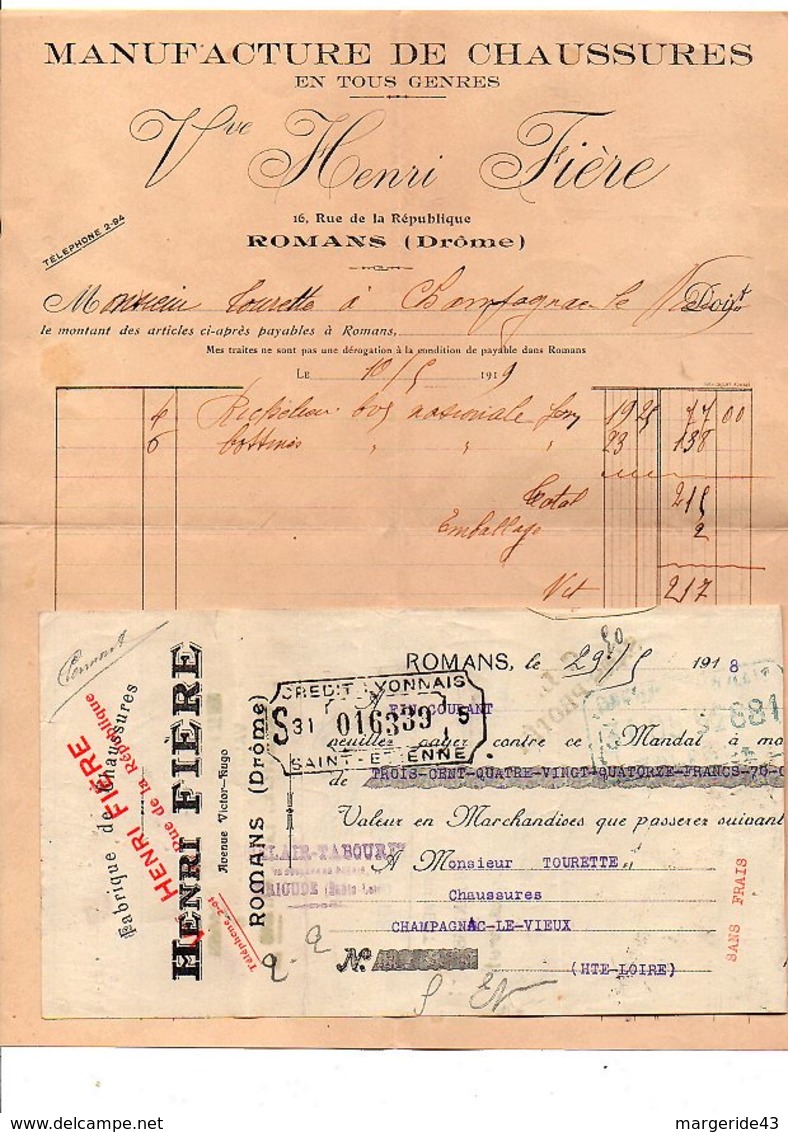 MANUFACTURE DE CHAUSSURES
EN TOUS GENRES
Vve Henri Fière
16, Rue de la République
TÉLÉPHONE 2-94
ROMANS (Drôme)
Monsieur Tourette à Champagnac-le Doit
le montant des articles ci-après payables à Romans,
Mes traites ne sont pas une dérogation à la condition de payable dans Romans
Le 10/5 1919
4 Richelieu box nationale 19 25 77 00
6 bottines " " " 23 138
Total 215
Emballage 2
Net 217
ROMANS, le 29/5 1918
CREDIT LYONNAIS
S 31 016339 5
SAINT-ETIENNE
FIN COURANT
92681
veuillez payer contre ce Mandat à
de TROIS-CENT-QUATRE-VINGT-QUATORZE-FRANCS-70-
Valeur en Marchandises que passerez suivant
A Monsieur TOURETTE
Chaussures
CHAMPAGNAC-LE-VIEUX
(HTE-LOIRE)
No
SANS FRAIS
Fabrique de Chaussures
HENRI FIÈRE
Rue de la République
HENRI FIÈRE
Avenue Victor-Hugo
Téléphone 2-94
ROMANS (Drôme)
margeride43